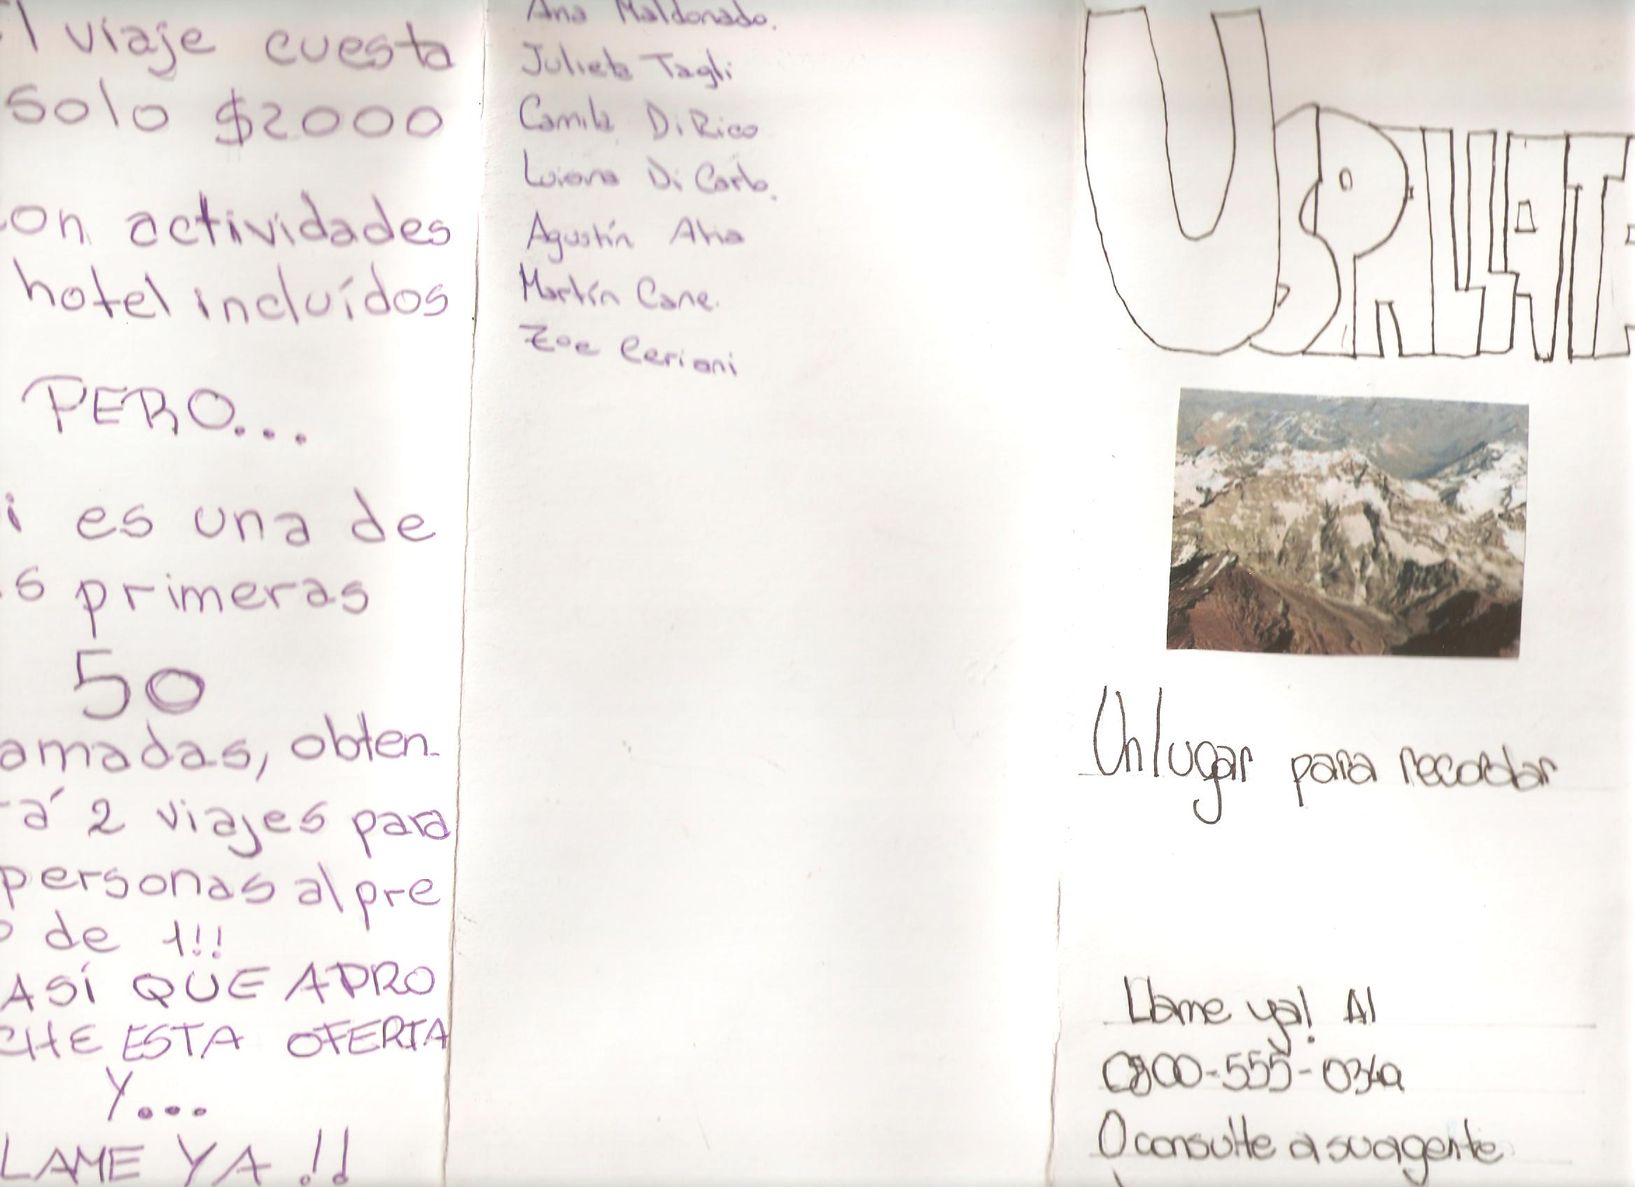 l viaje cuesta
solo $2000
on actividades
hotel incluídos
PERO...
i es una de
s primeras
50
amadas, obten-
rá 2 viajes para
personas al pre
o de 1!!
ASÍ QUE APRO
CHE ESTA OFERTA
Y...
LAME YA!!
Ana Maldonado.
Julieta Tagli
Camila Di Rico
Luiana Di Carlo.
Agustín Atia
Martín Cane.
Zoe Ceriani
USPALLATE
Un lugar para recordar
Llame ya! Al
0800-555-
O consulte a su agente